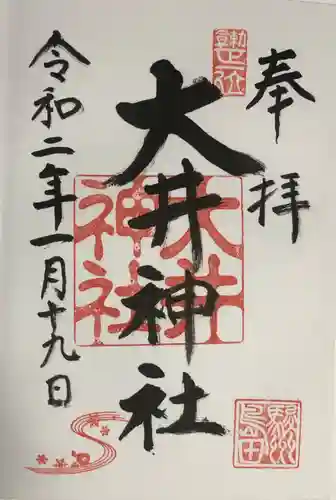 奉拝
大井神社
大井神社
令和二年一月十九日